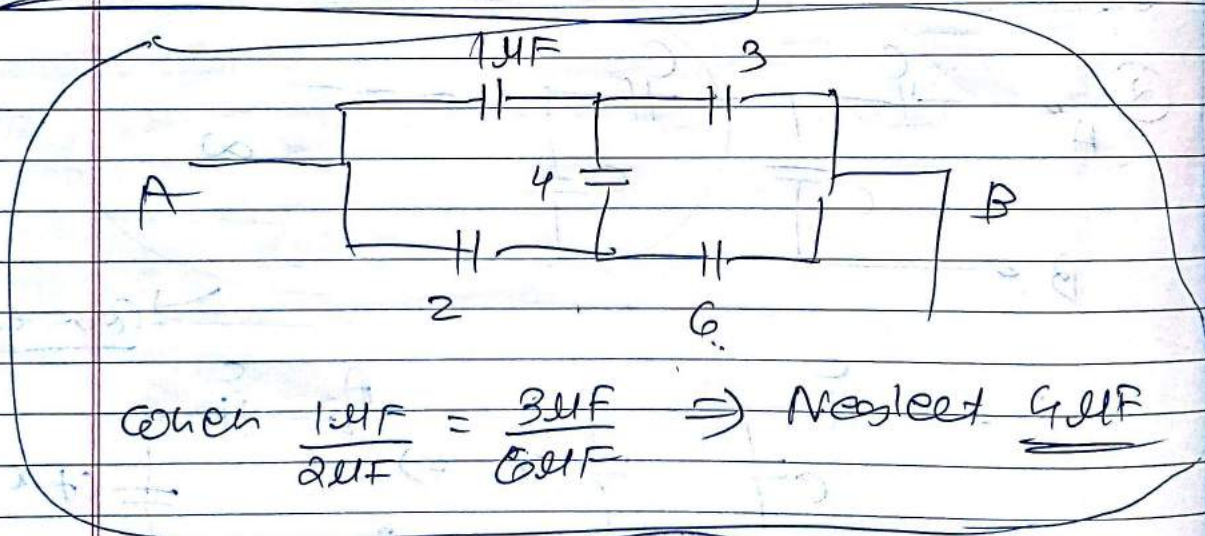 1 μF 3
A 4 B
2 6
when 1μF/2μF = 3μF/6μF ⇒ Neglect 4μF